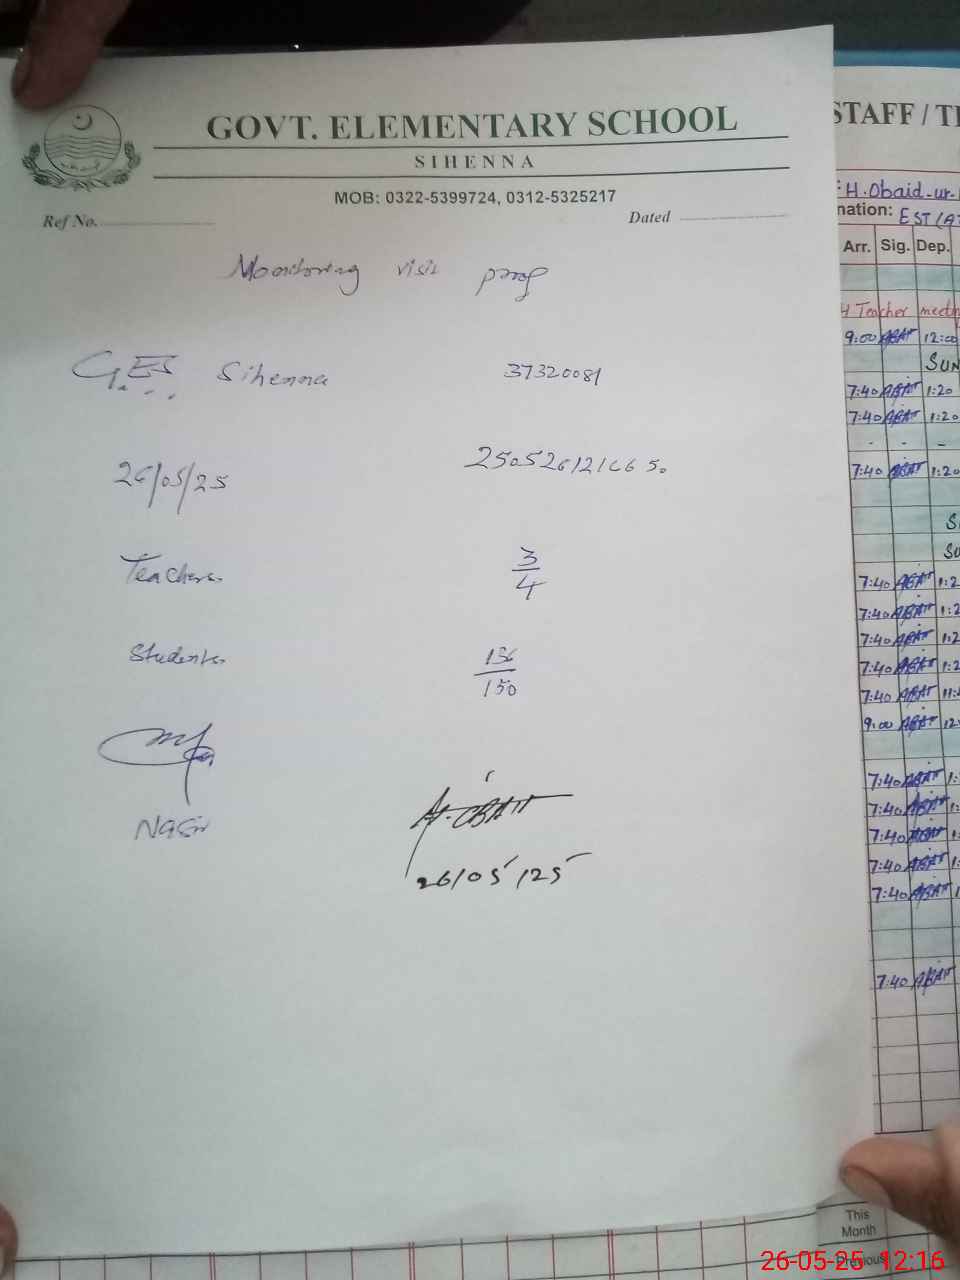 GOVT. ELEMENTARY SCHOOL
SIHENNA
MOB: 0322-5399724, 0312-5325217
Ref No.
Dated
Monitoring visit proof
G.E.S. Sihenna 37320081
26/05/25
Teachers. 3/4
Students. 150
Nasir
26/05/25
STAFF / T
H. Obaid-ur-
nation: EST (A
Arr. Sig. Dep.
Teacher meetin
9:00 12:00
SUN
7:40 1:20
7:40 1:20
- - -
7:40 1:20
S
SU
7:40 1:2
7:40 1:2
7:40 1:2
7:40 1:2
7:40 11:
9:00 12
7:40 1:
7:40 1:
7:40 1:
7:40 1:
7:40 1
7:40
This
Month
Previous
26-05-25 12:16